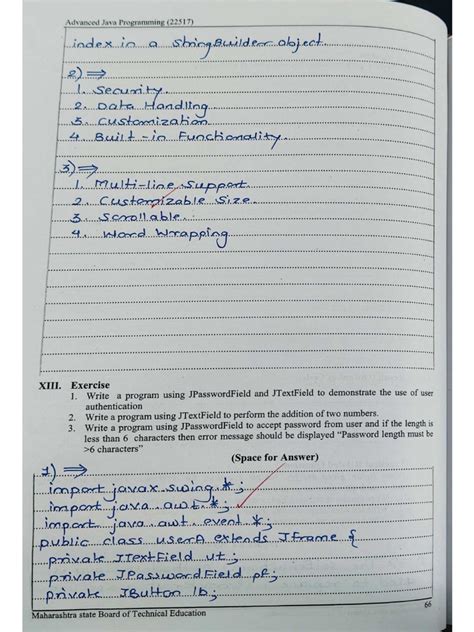 Advanced Java Programming (22517)
index in a StringBuilder object.
2) ⇒
1. Security.
2. Data Handling
3. Customization
4. Built-in Functionality.
3) ⇒
1. Multi-line Support.
2. Customizable Size.
3. Scrollable.
4. Word Wrapping
XIII. Exercise
1. Write a program using JPasswordField and JTextField to demonstrate the use of user
authentication
2. Write a program using JTextField to perform the addition of two numbers.
3. Write a program using JPasswordField to accept password from user and if the length is
less than 6 characters then error message should be displayed “Password length must be
>6 characters”
(Space for Answer)
1) ⇒
import javax.swing.*;
import java.awt.*;
import java.awt.event.*;
public class userA extends JFrame {
private JTextField ut;
private JPasswordField pf;
private JButton lb;
Maharashtra state Board of Technical Education
66